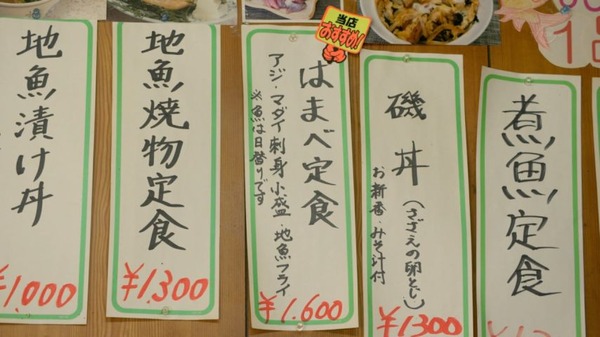 煮魚定食
当店
おすすめ!
磯丼
(さざえの卵とじ)
お新香・みそ汁付
¥1300
はまべ定食
アジ・マダイ刺身小盛・地魚フライ
※魚は日替りです
¥1.600
地魚焼物定食
¥1.300
地魚漬け丼
¥1.000